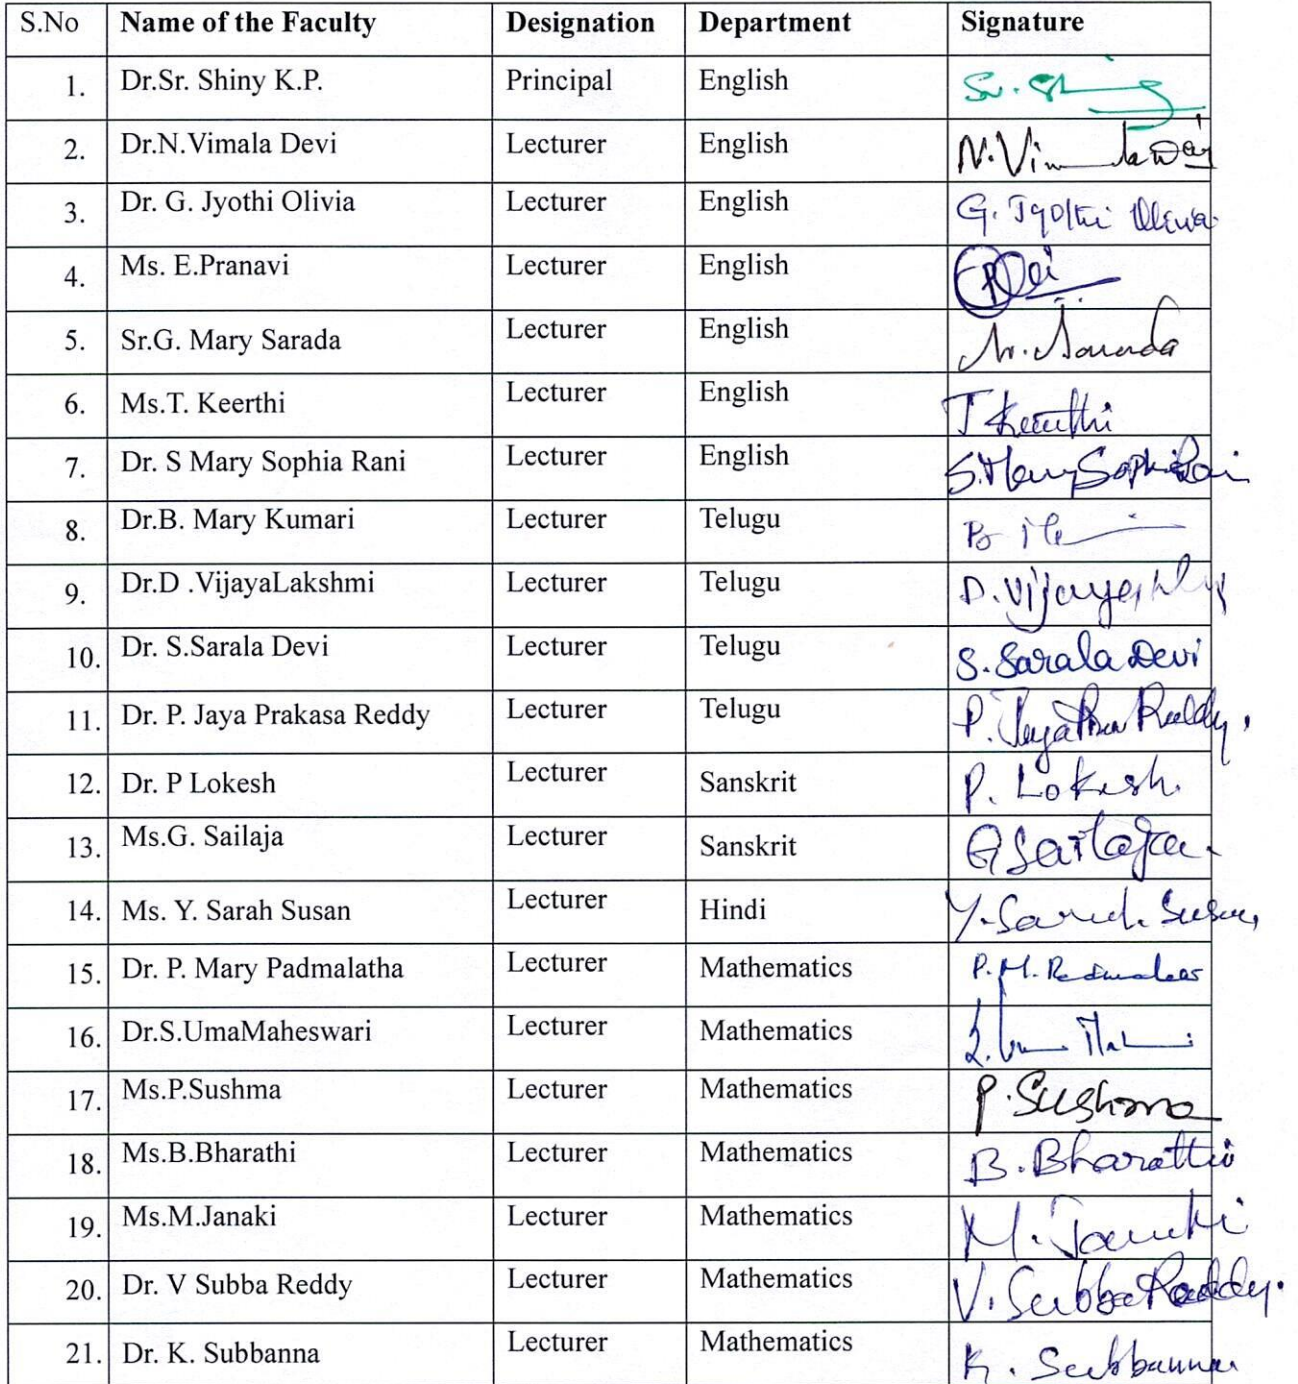 S.No Name of the Faculty Designation Department Signature
1. Dr.Sr. Shiny K.P. Principal English Sr. Shiny
2. Dr.N.Vimala Devi Lecturer English N.Vimala Devi
3. Dr. G. Jyothi Olivia Lecturer English G. Jyothi Olivia
4. Ms. E.Pranavi Lecturer English
5. Sr.G. Mary Sarada Lecturer English Sarada
6. Ms.T. Keerthi Lecturer English T Keerthi
7. Dr. S Mary Sophia Rani Lecturer English S.Mary Sophia Rani
8. Dr.B. Mary Kumari Lecturer Telugu
9. Dr.D .VijayaLakshmi Lecturer Telugu
10. Dr. S.Sarala Devi Lecturer Telugu S. Sarala Devi
11. Dr. P. Jaya Prakasa Reddy Lecturer Telugu
12. Dr. P Lokesh Lecturer Sanskrit P. Lokesh.
13. Ms.G. Sailaja Lecturer Sanskrit G Sailaja.
14. Ms. Y. Sarah Susan Lecturer Hindi Y. Sarah Susan
15. Dr. P. Mary Padmalatha Lecturer Mathematics
16. Dr.S.UmaMaheswari Lecturer Mathematics
17. Ms.P.Sushma Lecturer Mathematics P.Sushma
18. Ms.B.Bharathi Lecturer Mathematics B.Bharathi
19. Ms.M.Janaki Lecturer Mathematics M. Janaki
20. Dr. V Subba Reddy Lecturer Mathematics V. Subba Reddy.
21. Dr. K. Subbanna Lecturer Mathematics K. Subbanna